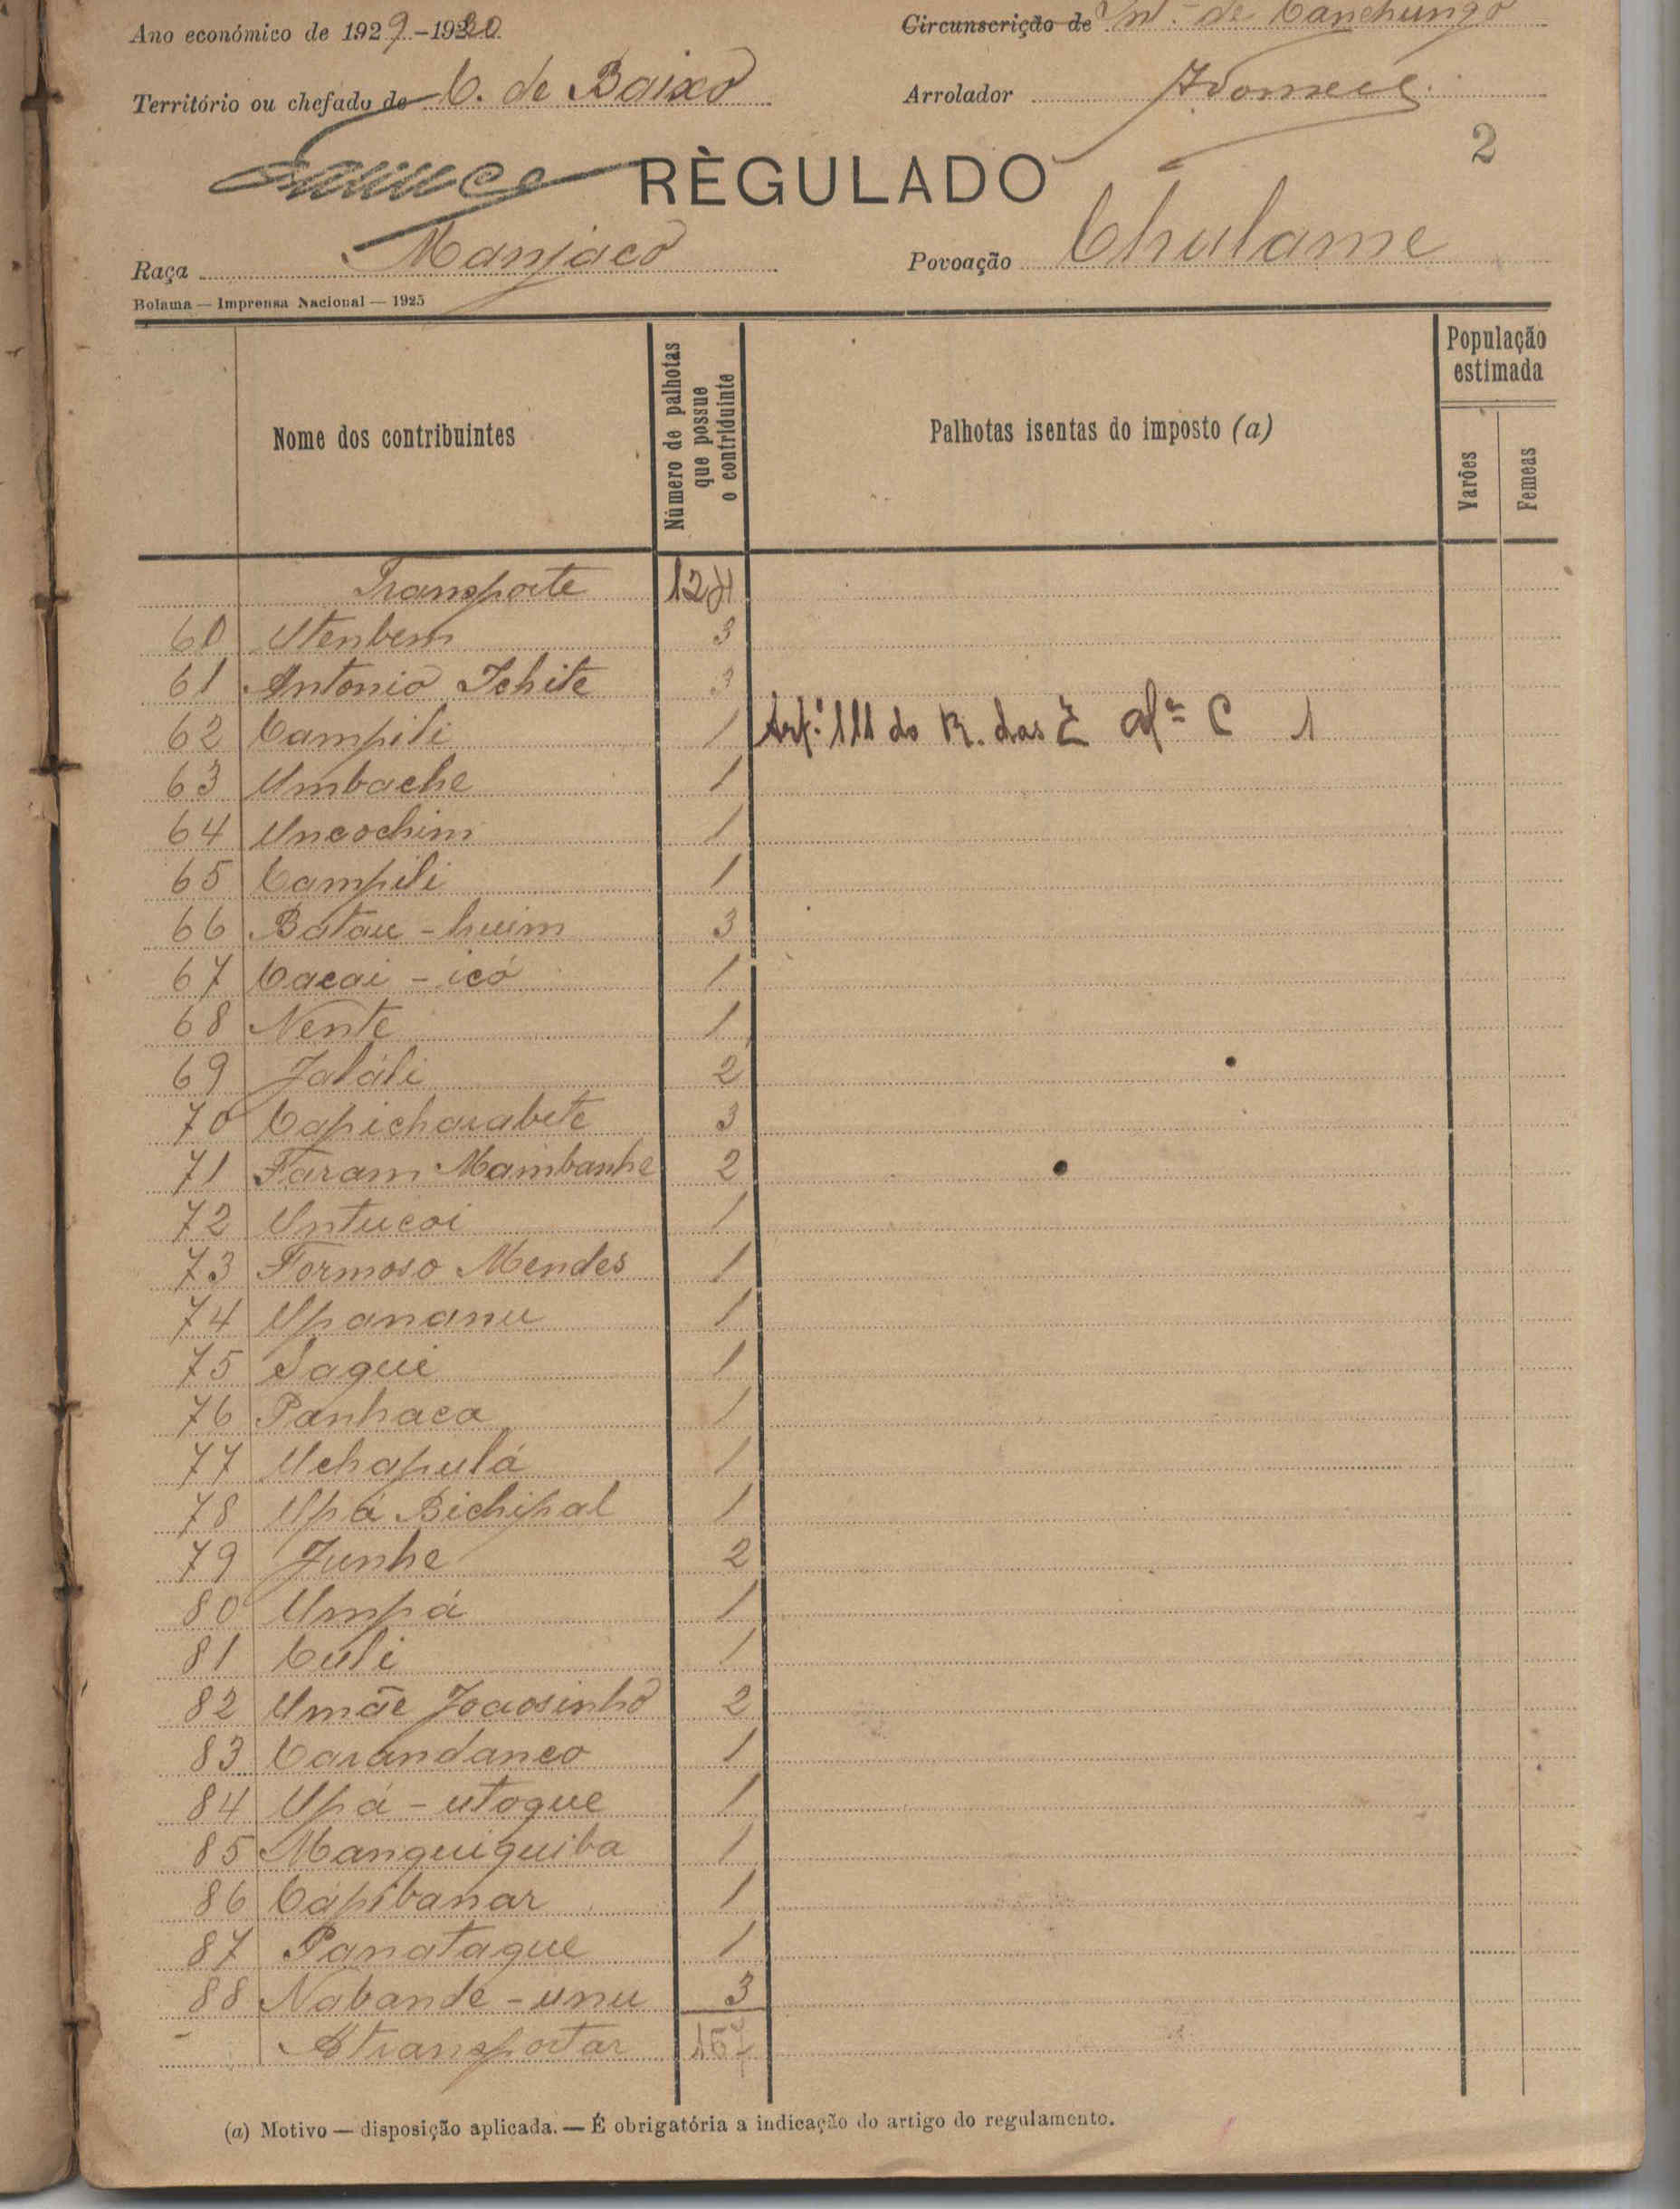 Ano económico de 1929-1930 Circunscrição de Int.ª de Canchungo
Território ou chefado de C. de Baixo Arrolador
2
RÈGULADO
Raça Manjaco Povoação Chulame
Bolama — Imprensa Nacional — 1925
Nome dos contribuintes
Número de palhotas que possue o contriduinte
Palhotas isentas do imposto (a)
População estimada
Varões
Femeas
Transporte 124
60 Utenbem 3
61 Antonio Tchite 3
62 Campili 1 Art.º 111 do R. das Al.ª C 1
63 Umbache 1
64 Uncochim 1
65 Campili 1
66 Batau - huim 3
67 Cacai - icó 1
68 Nente 1
69 Jaláli 2
70 Capicharabete 3
71 Faram Mambanhe 2
72 Untucai 1
73 Formoso Mendes 1
74 Upananu 1
75 Saqui 1
76 Panhaca 1
77 Uchapulá 1
78 Upá Bichipal 1
79 Junhe 2
80 Umpá 1
81 Culi 1
82 Umãe Joaosinho 2
83 Carandanco 1
84 Upá - utoque 1
85 Manquiquiba 1
86 Capibanar 1
87 Panataque 1
88 Nabande - unu 3
A transportar 167
(a) Motivo — disposição aplicada. — É obrigatória a indicação do artigo do regulamento.